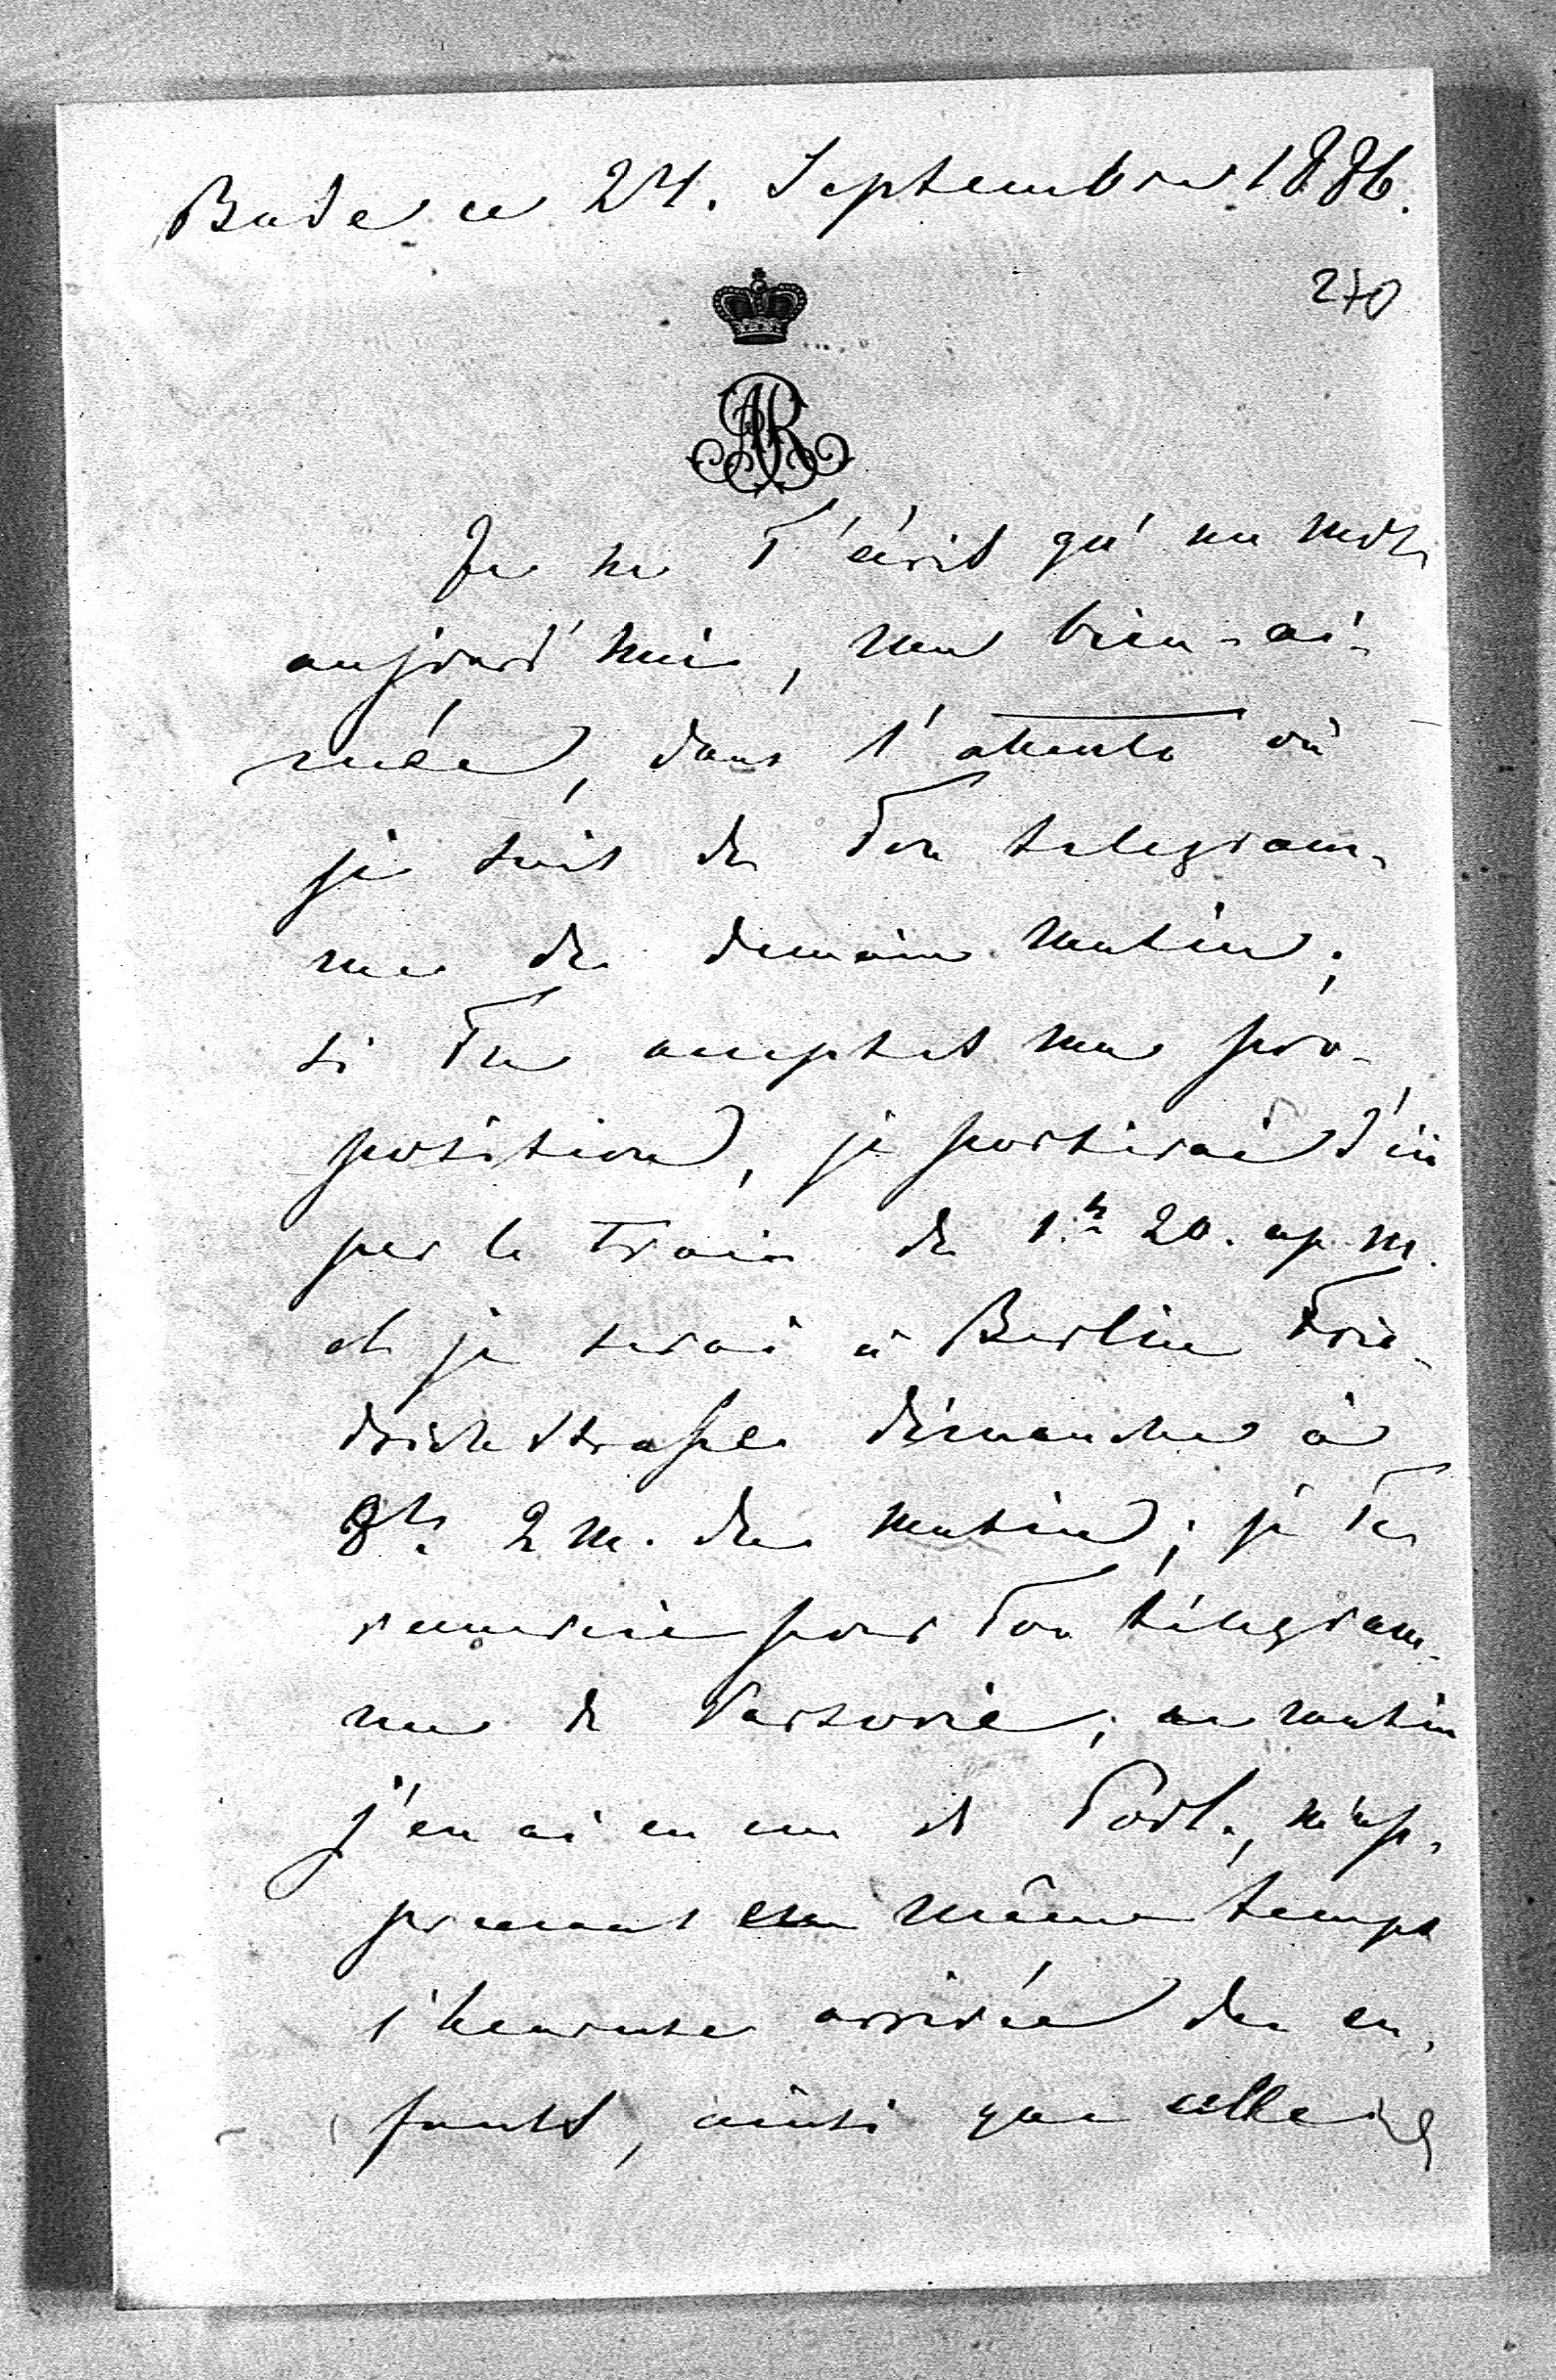 Bade ce 24. Septembre 1886.
270
AR
Je ne T'écris qu'un mot
aujourd'hui, ma bien-ai-
mée, dans l'attente où
je suis de Ton telegram-
me de demain matin;
si Tu acceptes ma pro-
position, je partirai d'ici
par le train de 1h 20. ap. m.
et je serai à Berlin Frie-
drichstraße dimanche à
8h. 2 m. du matin; je Te
remercie pour Ton télégram-
me de Varsovie; ce matin
j'en ai eu un de m'ap-
prenant en même temps
l'heureuse arrivée des en-
fants, ainsi que celle